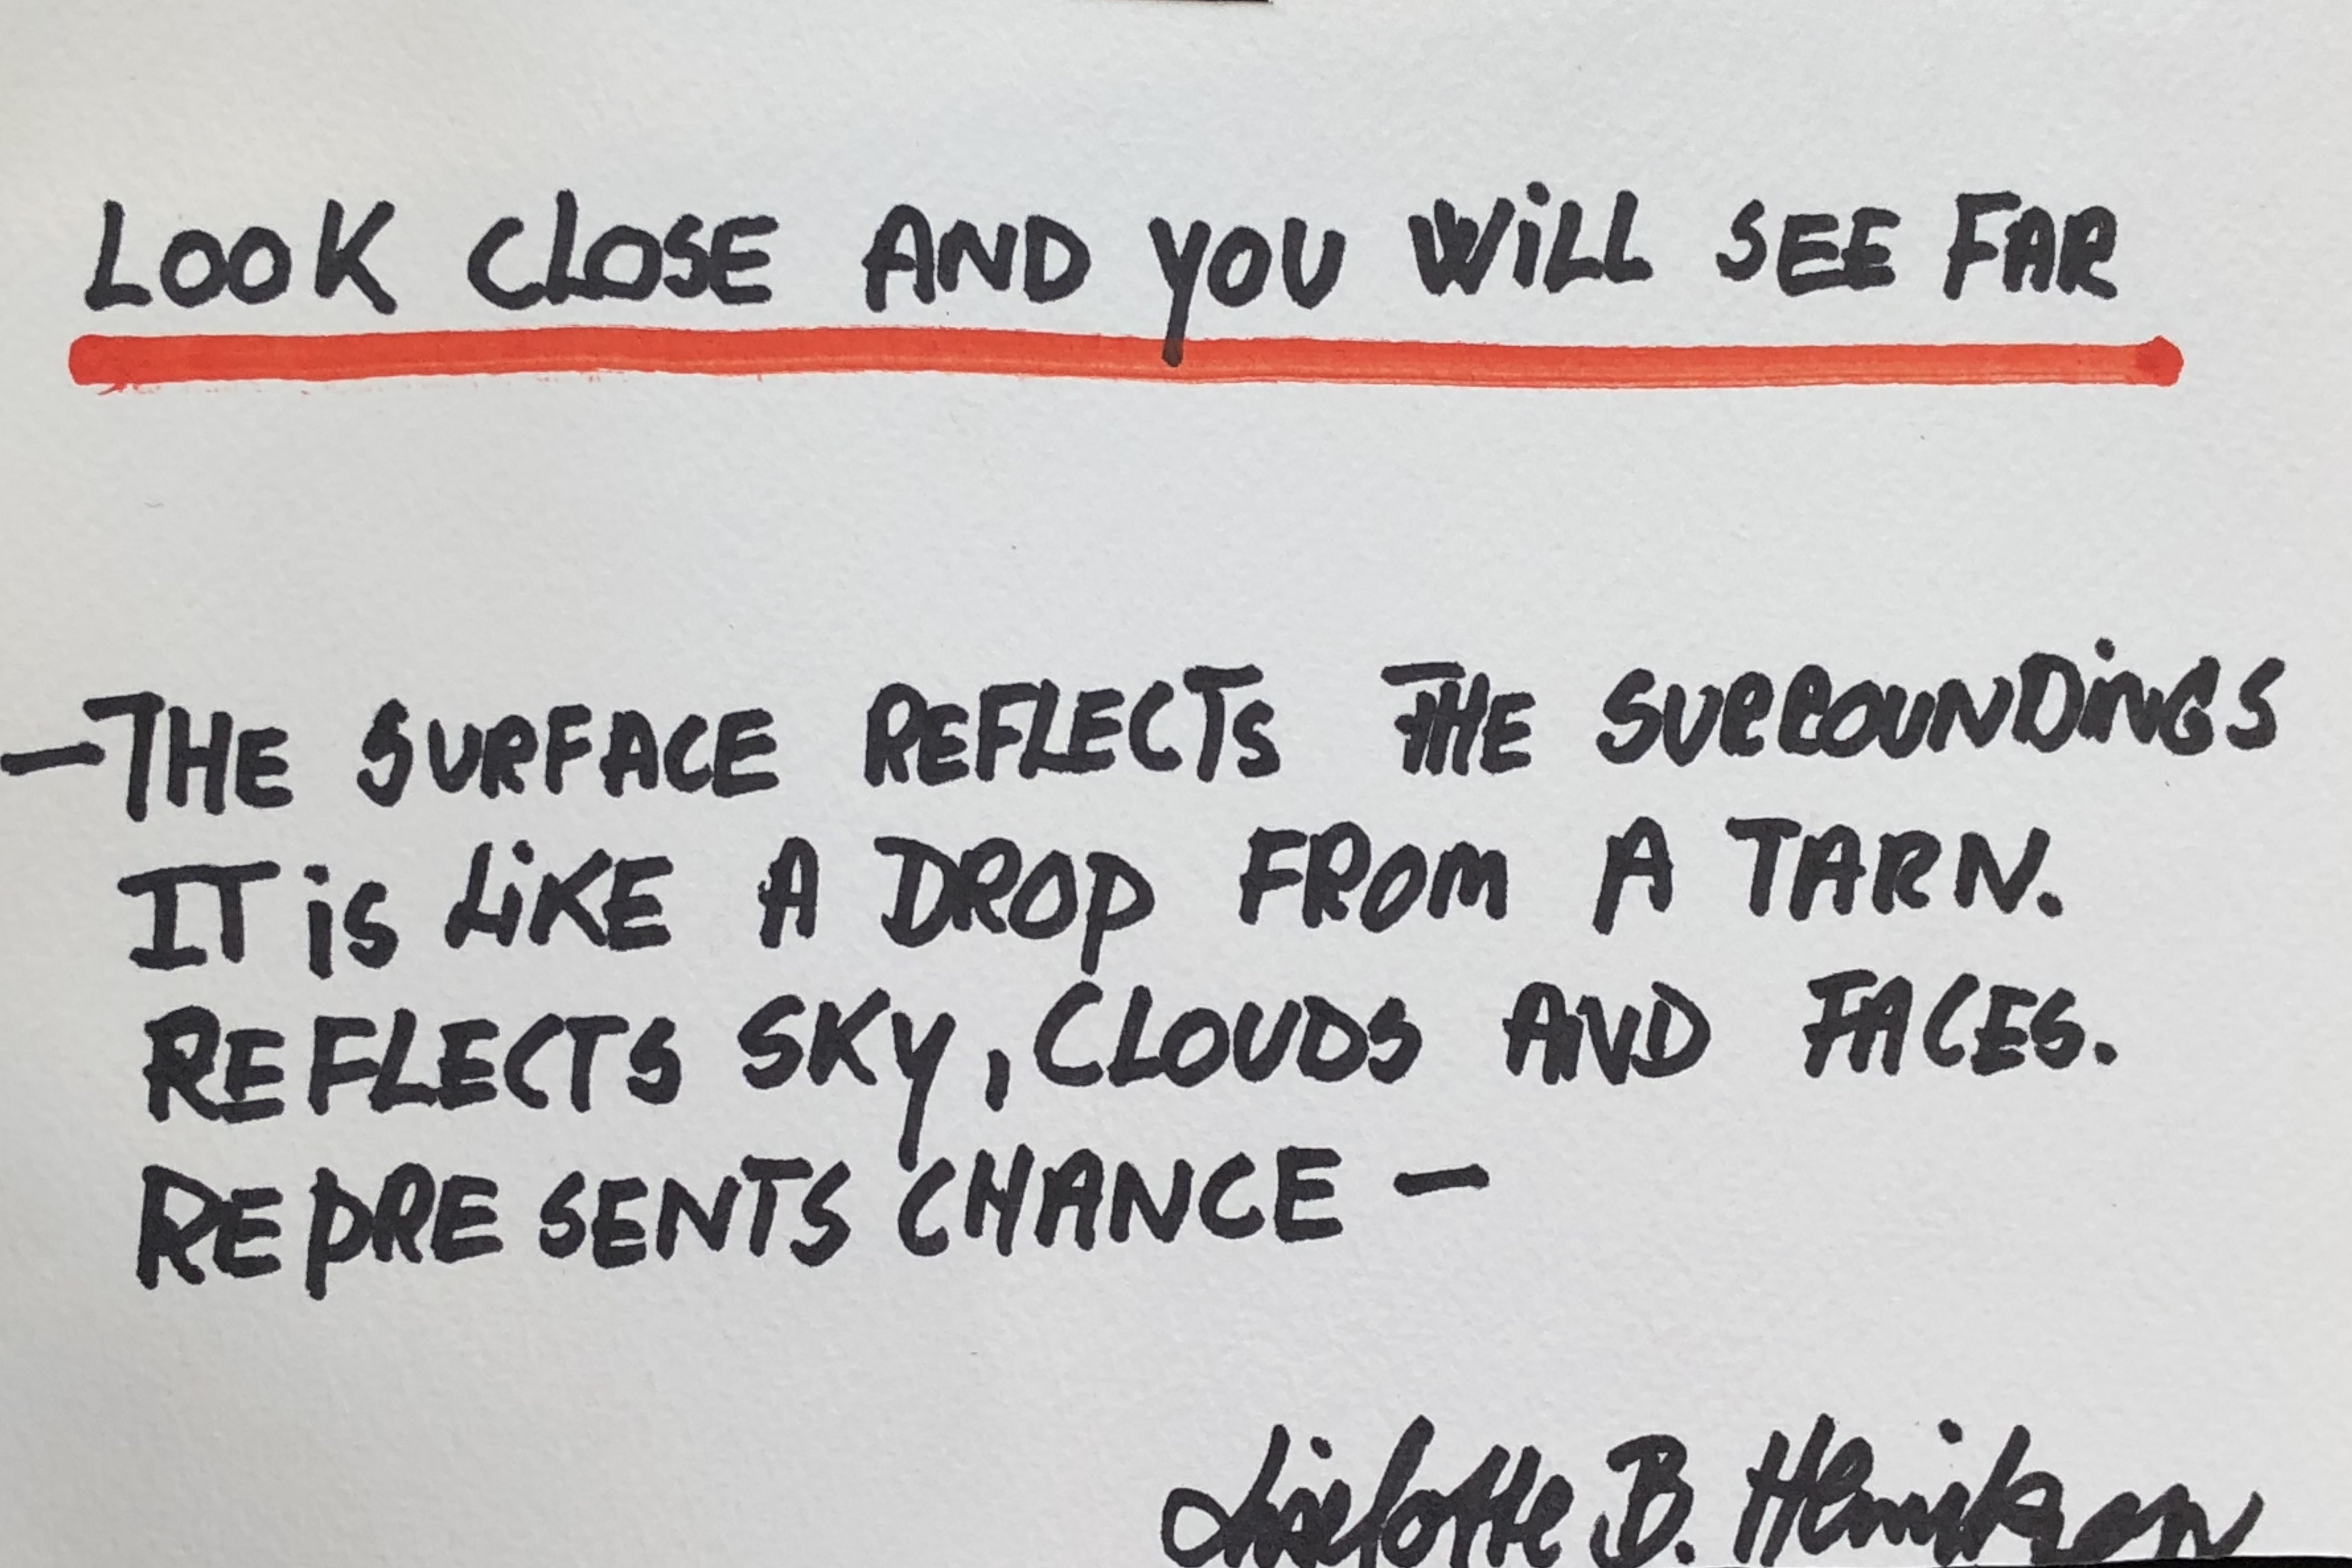 LOOK CLOSE AND YOU WILL SEE FAR
—THE SURFACE REFLECTS THE SURROUNDINGS
IT is LiKE A DROP FROM A TARN.
REFLECTS SKY, CLOUDS AND FACES.
REPRESENTS CHANCE —
Liselotte B. Henriksen